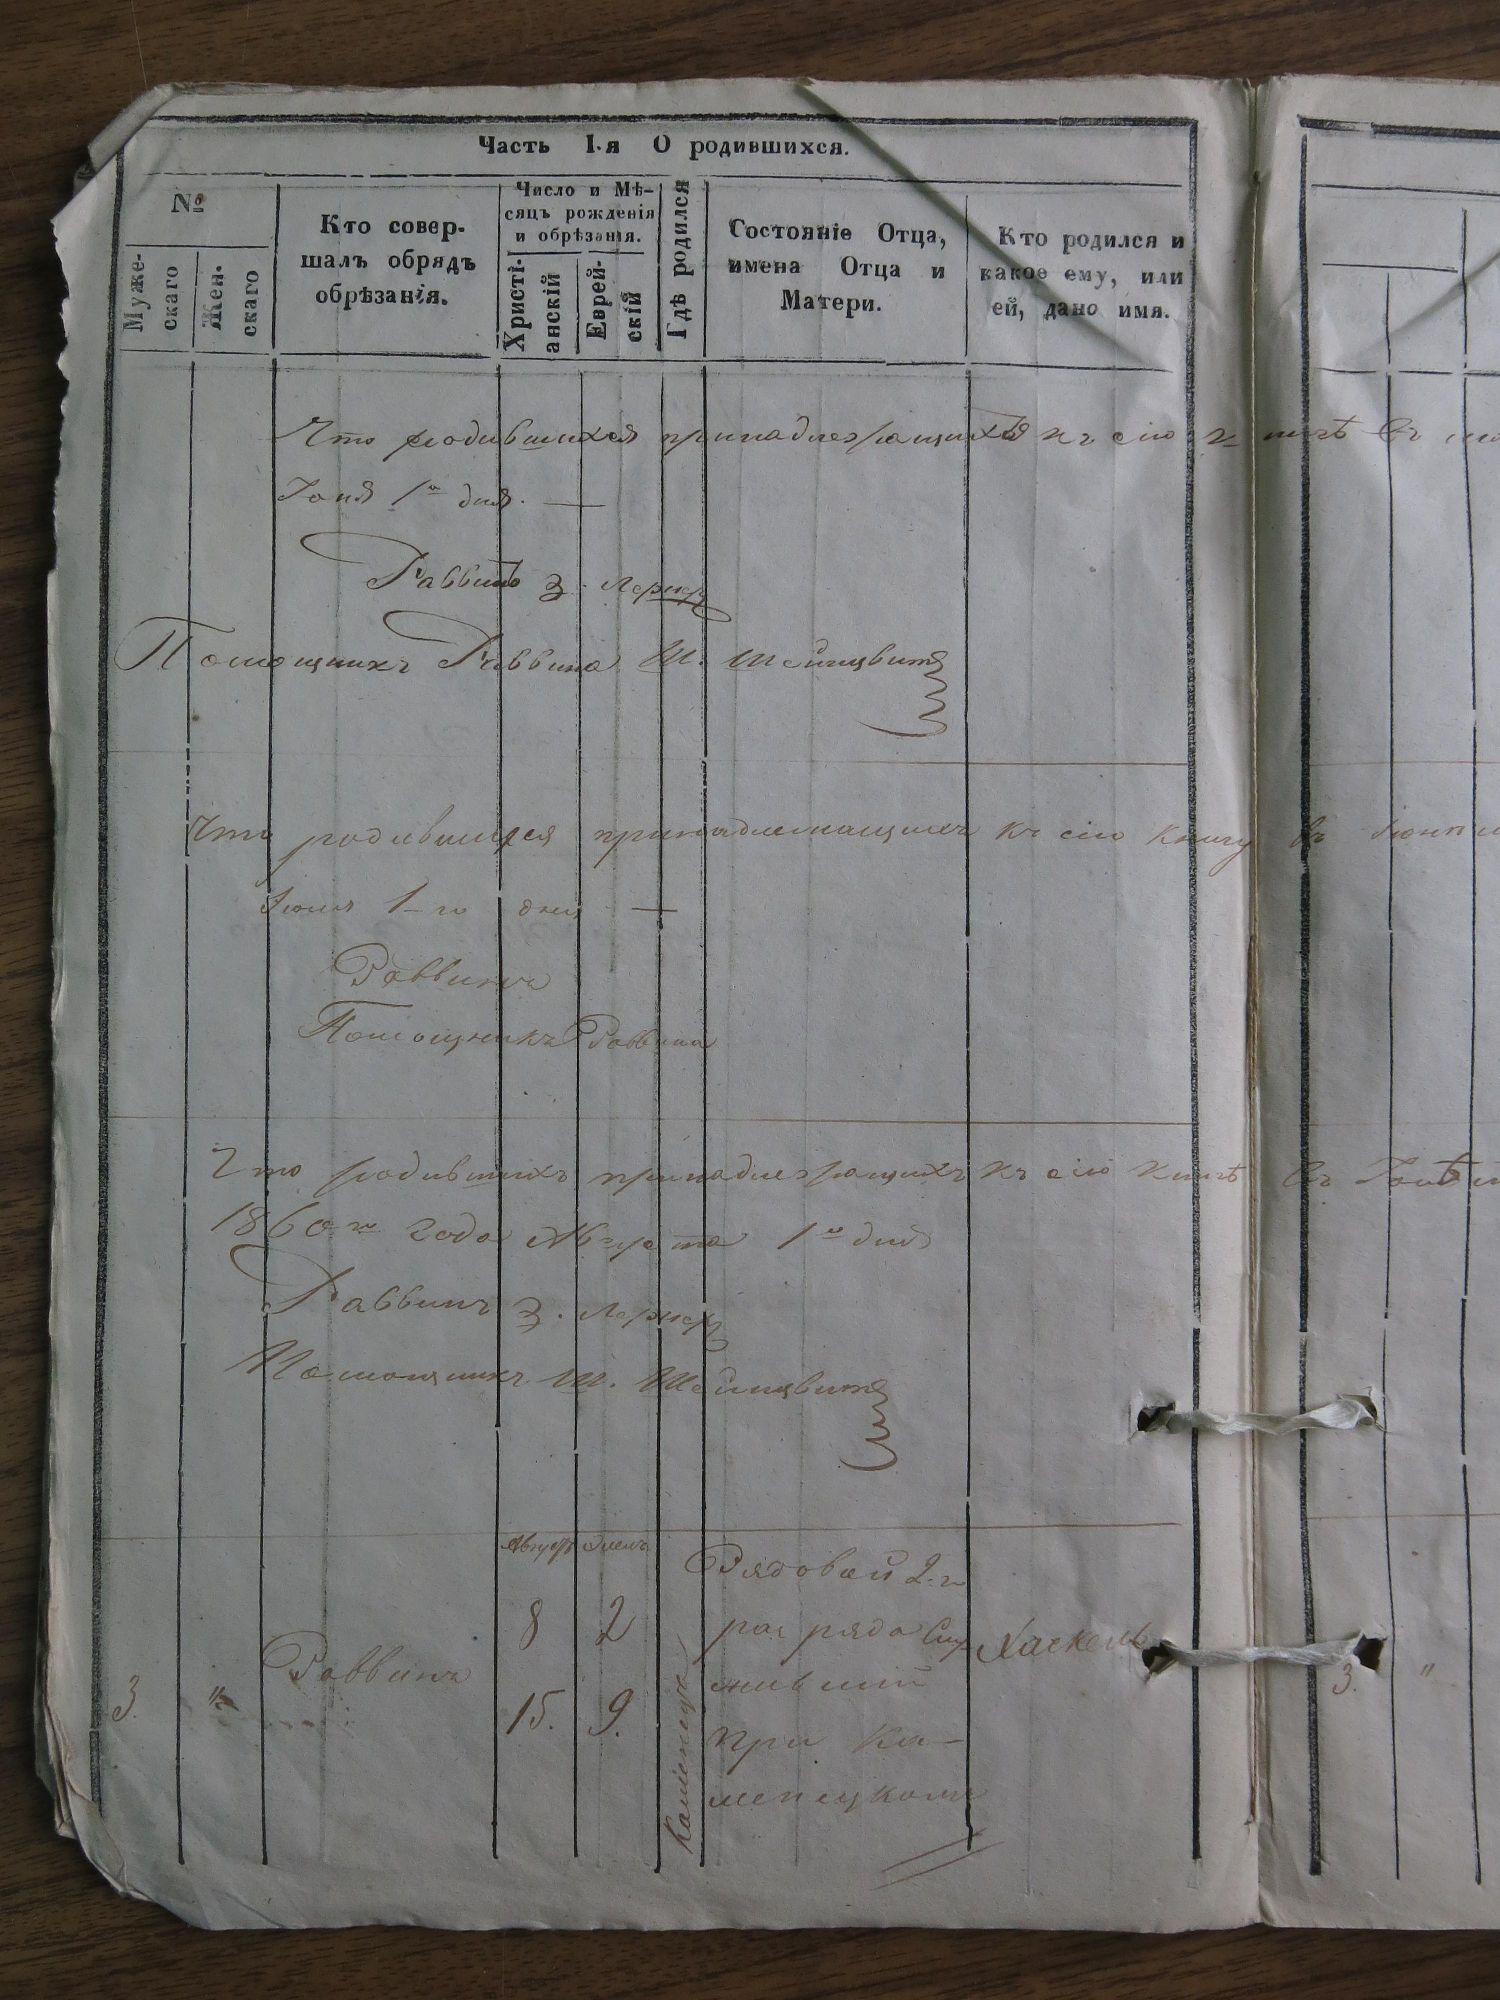 Часть I-я О родившихся.
№
Муже-
скаго
Жен-
скаго
Кто совер-
шалъ обрядъ
обрѣзанія.
Число и Мѣ-
сяцъ рожденія
и обрѣзанія.
Христі-
анскій
Еврей-
скій
Гдѣ родился
Состояніе Отца,
имена Отца и
Матери.
Кто родился и
какое ему, или
ей, дано имя.
Что родившихся принадлежащихъ къ сію въ
1го дня. —
Раввинъ З. Лернер
Помощникъ Раввина Ш.
Что родившихся принадлежащихъ къ сію книгу въ
1-го дня —
Раввинъ
Помощникъ Раввина
Что родившихъ принадлежащихъ къ сію книгѣ въ
1860го года Августа 1го дня
Раввинъ З. Лернер
Помощникъ Ш.
3.
"
Раввинъ
Августъ
8
15.
2
9.
Каменецъ
Рядовой 2-го
разряда Слу
жившій
при Ка-
менецкомъ
Хаскель
3.
"